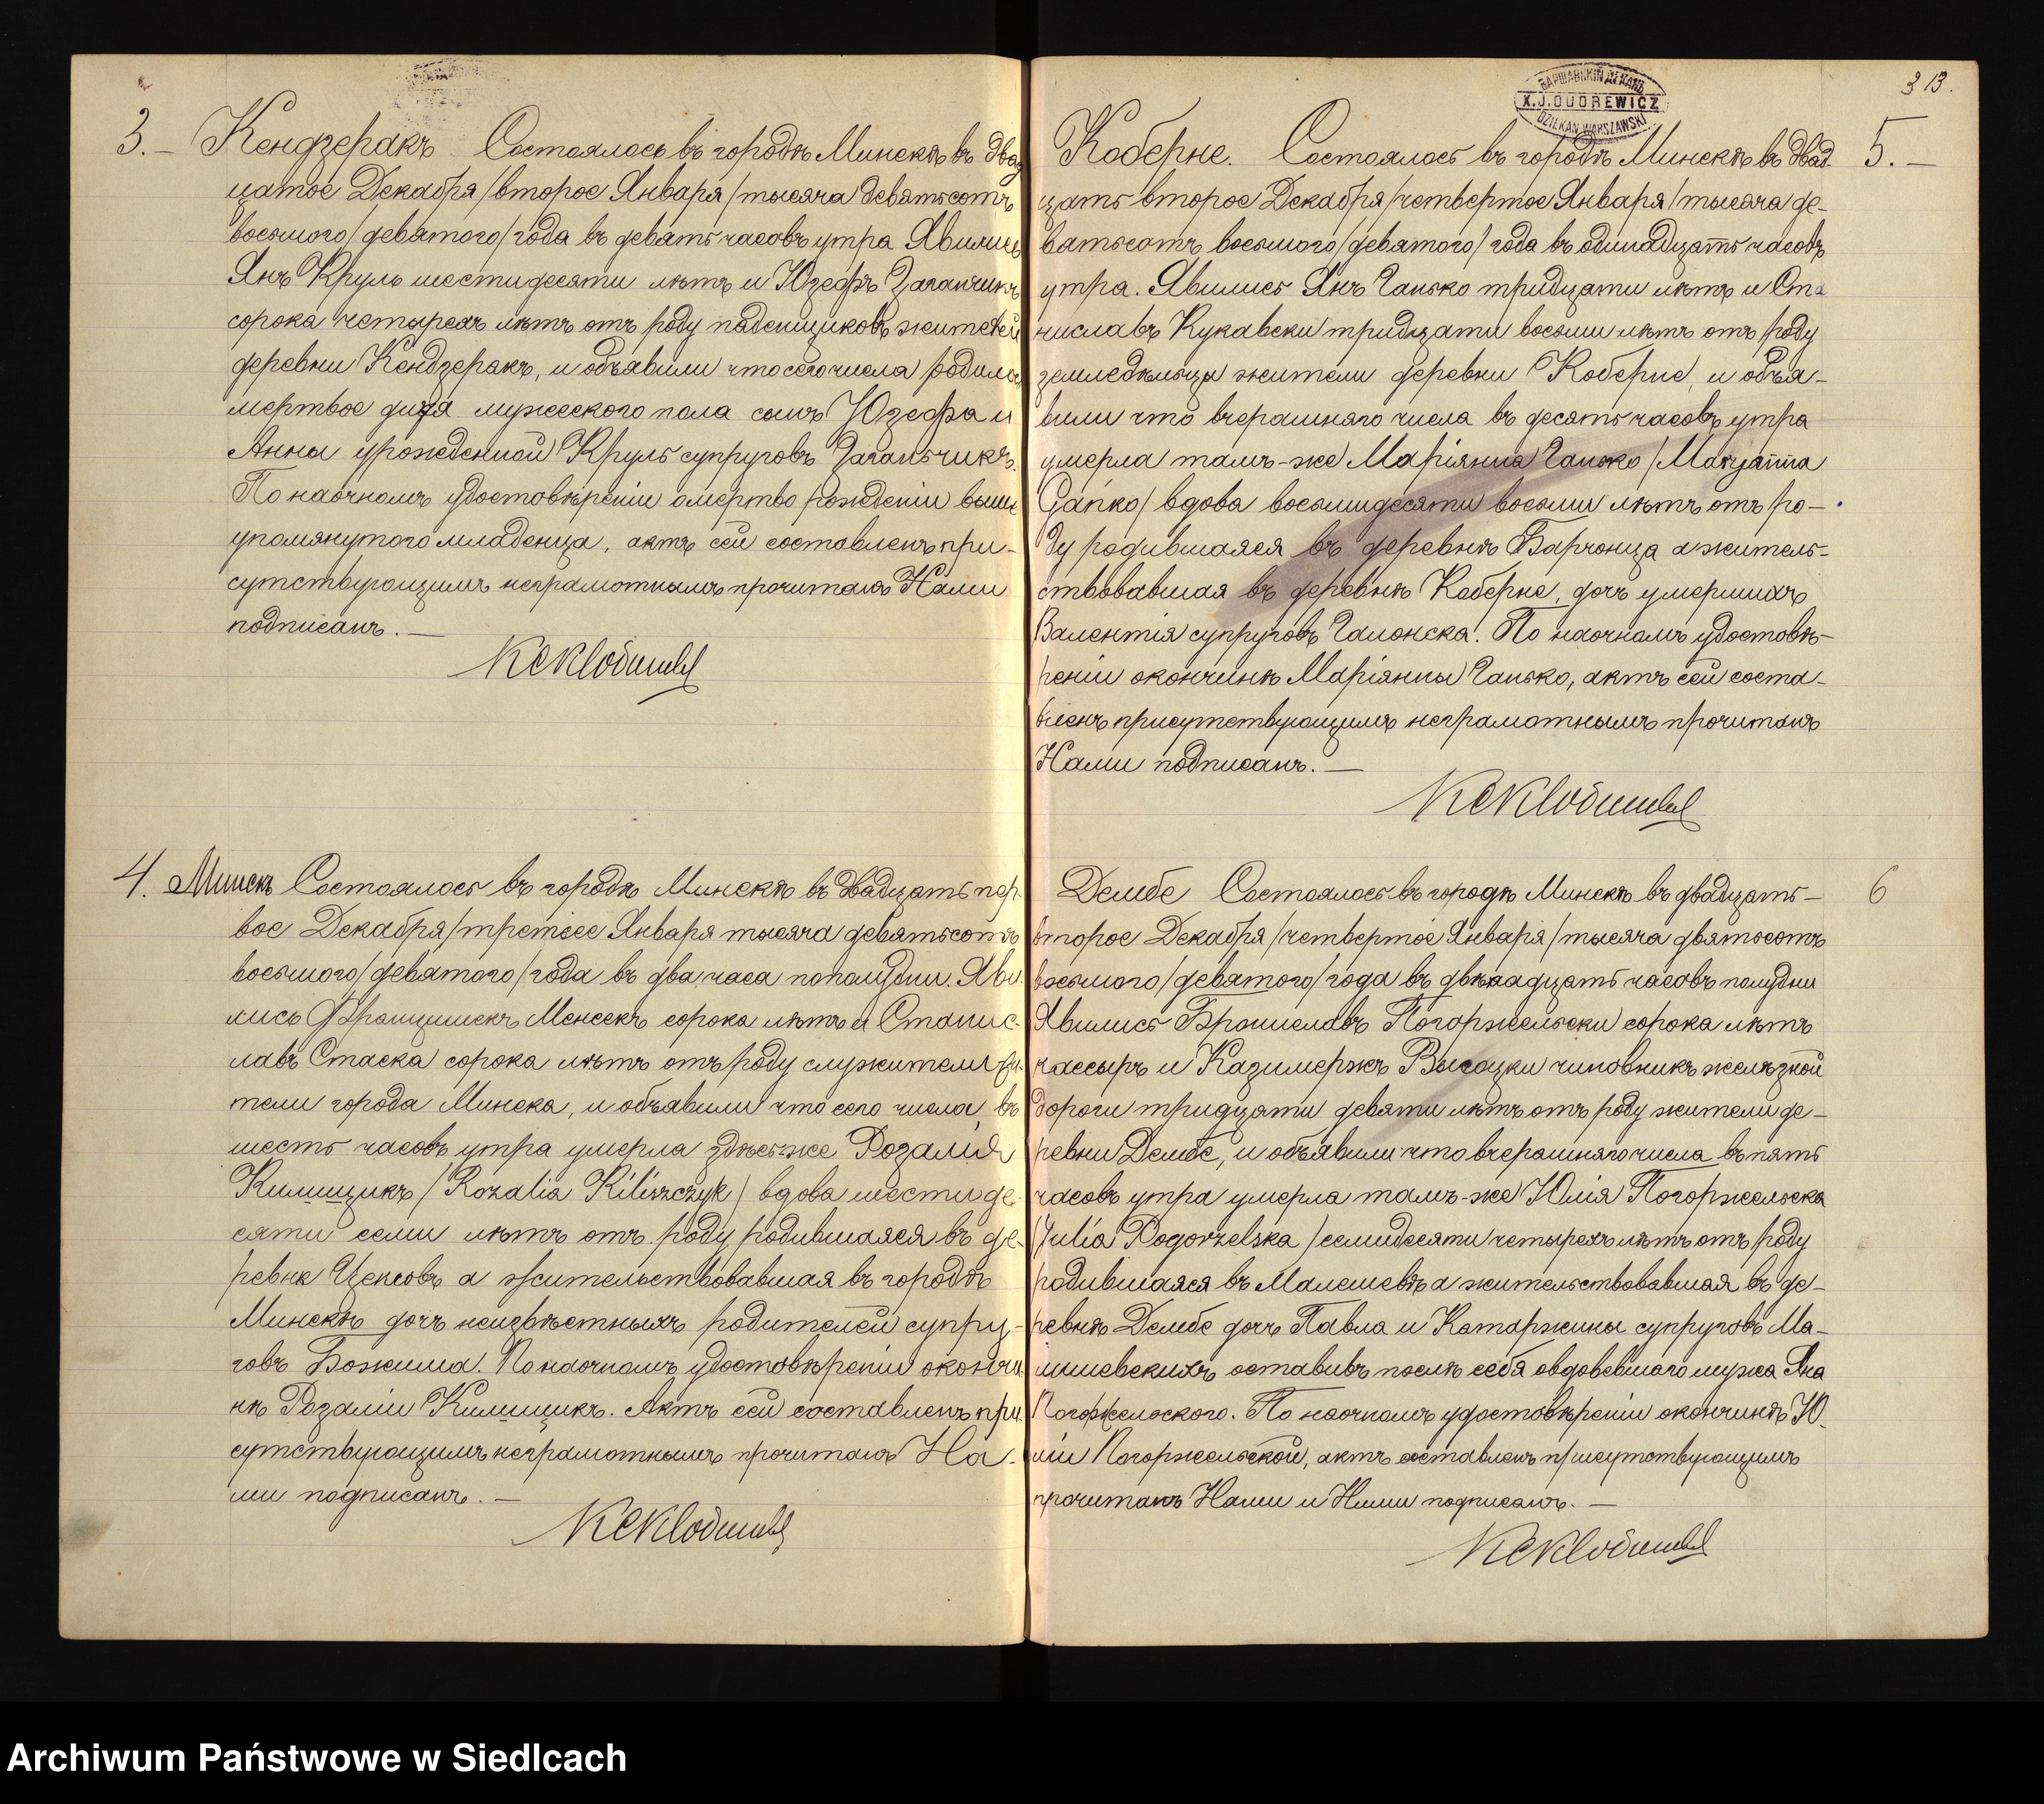 3.— Кендзеракъ Состоялось въ городѣ Минскѣ въ двад
цатое Декабря /второе Января/ тысяча девятьсотъ
восьмого /девятого/ года въ девять часовъ утра Явились
Янъ Круль шестидесяти лѣтъ и Юзефъ Заганчикъ
сорока четырехъ лѣтъ отъ роду паденщиковъ жителей
деревни Кендзеракъ, и объявили что сего числа родилось
мертвое дитя мужеского пола сынъ Юзефа и
Анны урожденной Круль супруговъ Заганьчикъ.
По наочномъ удостовѣреніи о мертво рожденіи выше
упомянутого младенца, актъ сей составленъ при-
сутствующимъ неграмотнымъ прочитанъ Нами
подписанъ.—
4. Минскъ Состоялось въ городѣ Минскѣ въ двадцать пер-
вое Декабря /третее Января тысяча девятьсотъ
восьмого /девятого/ года въ два часа пополудни. Яви-
лись Францишекъ Менсекъ сорока лѣтъ и Станис-
лавъ Стаска сорока лѣтъ отъ роду служители жи-
тели города Минска, и объявили что сего числа въ
шесть часовъ утра умерла здѣсьже Розалія
Килищикъ /Rozalia Kiliszczyk/ вдова шести де-
сяти семи лѣтъ отъ роду родившаяся въ де-
ревнѣ а жительствовавшая въ городѣ
Минскѣ дочь неизвѣстныхъ родителей супру-
говъ Божима. По наочномъ удостовѣреніи окончи-
нѣ Розаліи Килищикъ. Актъ сей составленъ при-
сутствующимъ неграмотнымъ прочитанъ На-
ми подписанъ.—
313.
ВАРШАВСКІЙ ДЕКАНЪ
X.J.DUDREWICZ
DZIEKAN WARSZAWSKI
Коберне. Состоялось въ городѣ Минскѣ въ двад- 5.—
цать второе Декабря /четвертое Января/ тысяча де-
вятьсотъ восьмого /девятого/ года въ одинадцать часовъ
утра. Явились Янъ Ганько тридцати лѣтъ и Ста
ниславъ Кукавски тридцати восьми лѣтъ отъ роду
земледѣльцы жители деревни Коберне, и объя-
вили что вчерашняго числа въ десять часовъ утра
умерла тамъ-же Маріянна Ганько /Maryanna
Gańko/ вдова восьмидесяти восьми лѣтъ отъ ро-
ду родившаяся въ деревнѣ Барчонца а житель-
ствовавшая въ деревнѣ Коберне, дочь умершихъ
Валентія супруговъ Галонска. По наочномъ удостовѣ-
реніи окончинѣ Маріянны Ганько, актъ сей соста-
вленъ присутствующимъ неграмотнымъ прочитанъ
Нами подписанъ.—
Дембе Состоялось въ городѣ Минскѣ въ двадцать— 6
второе Декабря /четвертое Января/ тысяча двятьсотъ
восьмого /девятого/ года въ двѣнадцать часовъ полудни
Явились Брониславъ Погоржельски сорока лѣтъ
кассыръ и Казимержъ Высоцки чиновникъ желѣзной
дороги тридцати девяти лѣтъ отъ роду жители де-
ревни Дембе, и объявили что вчерашняго числа въ пять
часовъ утра умерла тамъ-же Юлія Погоржельска
/Julia Pogorzelska/ семидесяти четырехъ лѣтъ отъ роду
родившаяся въ Малешевѣ а жительствовавшая въ де-
ревнѣ Дембе дочь Павла и Катаржины супруговъ Ма-
лишевскихъ оставивъ послѣ себя овдовевшого мужа Яна
Погоржельского. По наочномъ удостовѣреніи окончинѣ Ю-
ліи Погоржельской, актъ составленъ присутствующимъ
прочитанъ Нами и Ними подписанъ.—
Archiwum Państwowe w Siedlcach